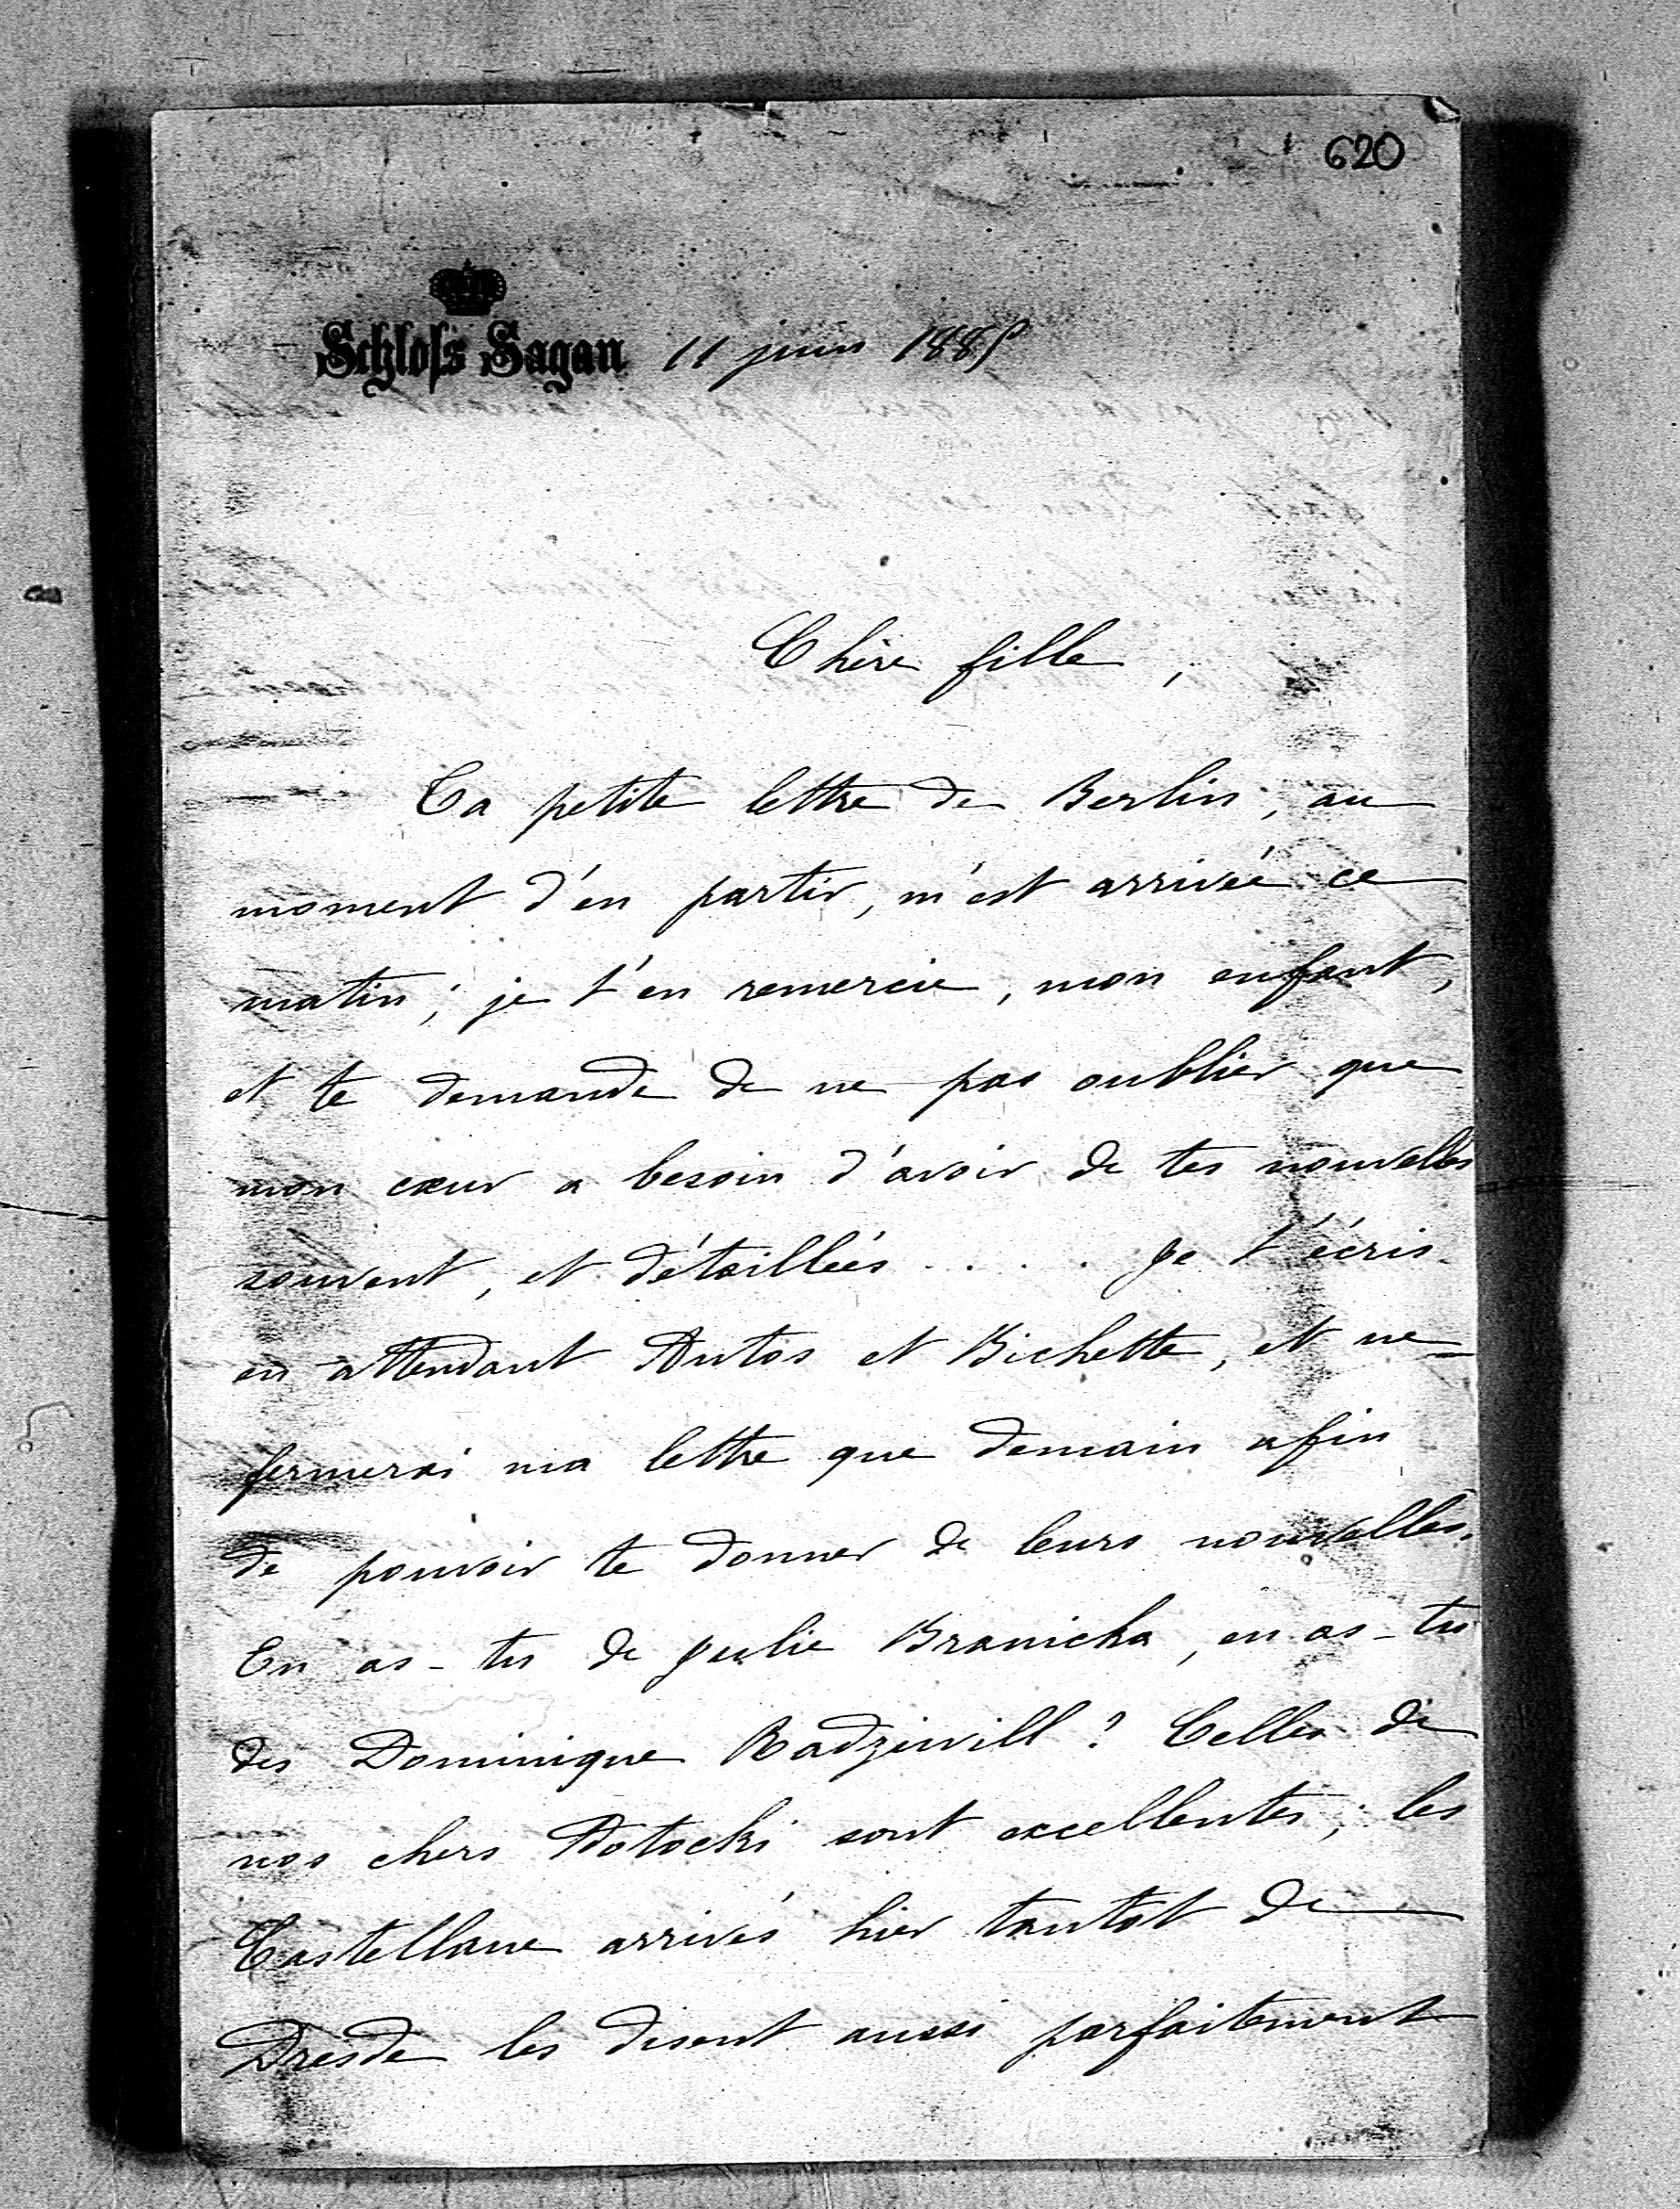 620
Schloſs Sagan 11 juin 1885
Chère fille,
Ta petite lettre de Berlin, au
moment d'en partir, m'est arrivée ce
matin; je t'en remercie, mon enfant,
et te demande de ne pas oublier que
mon cœur a besoin d'avoir de tes nouvelles
souvent, et détaillées . . . . Je t'écris
en attendant Antos et Bichette, et ne
fermerai ma lettre que demain afin
de pouvoir te donner de leurs nouvelles.
En as-tu de Julie Branicka, en as-tu
des Dominique Radziwill? Celles de
nos chers Potocki sont excellentes; les
Castellane arrivés hier tantot de
Dresde les disent aussi parfaitement